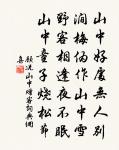 山中好處無人別
澗梅偽作山中雪
野客相逢夜不眠
山中童子燒松節
顧況山中贈客詞典網
喜